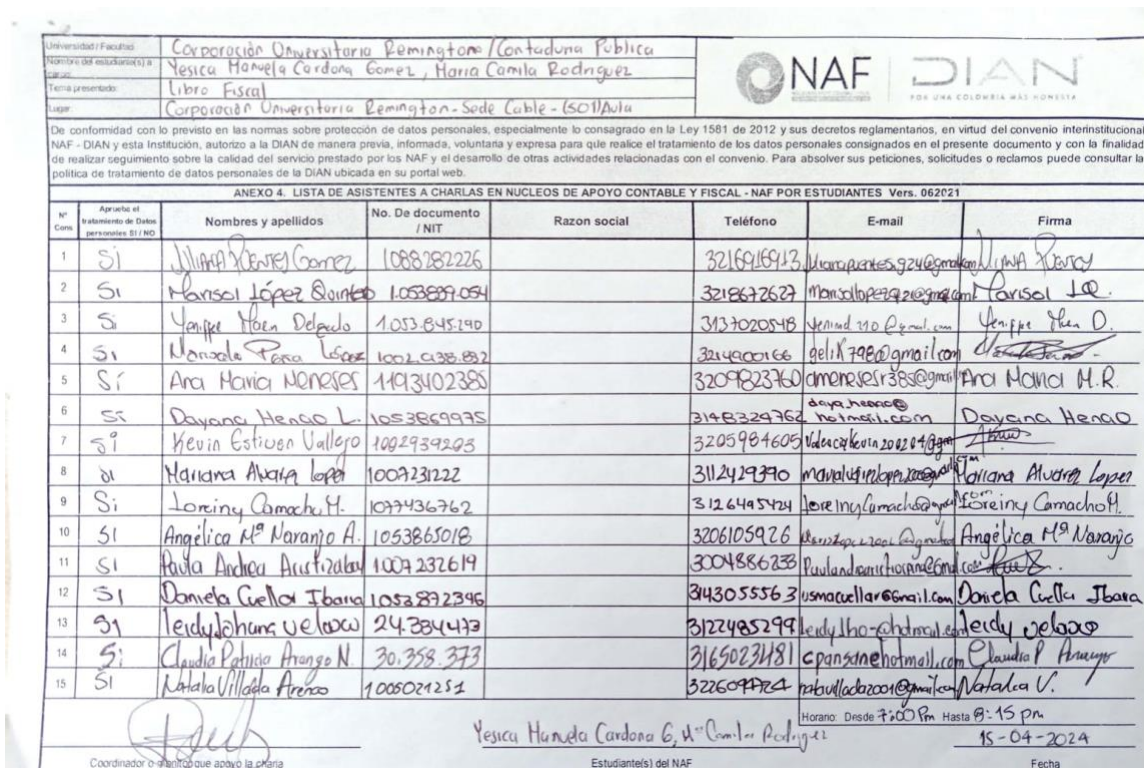 Universidad / Facultad: Corporación Universitaria Remington / Contaduria Publica
Nombre del estudiante(s) a cargo: Yesica Manuela Cardona Gomez, Maria Camila Rodriguez
Tema presentado: Libro Fiscal
Lugar: Corporación Universitaria Remington - Sede Cable - (501) Aula
NAF DIAN
POR UNA COLOMBIA MÁS HONESTA
De conformidad con lo previsto en las normas sobre protección de datos personales, especialmente lo consagrado en la Ley 1581 de 2012 y sus decretos reglamentarios, en virtud del convenio interinstitucional
NAF - DIAN y esta Institución, autorizo a la DIAN de manera previa, informada, voluntaria y expresa para que realice el tratamiento de los datos personales consignados en el presente documento y con la finalidad
de realizar seguimiento sobre la calidad del servicio prestado por los NAF y el desarrollo de otras actividades relacionadas con el convenio. Para absolver sus peticiones, solicitudes o reclamos puede consultar la
política de tratamiento de datos personales de la DIAN ubicada en su portal web.
ANEXO 4. LISTA DE ASISTENTES A CHARLAS EN NUCLEOS DE APOYO CONTABLE Y FISCAL - NAF POR ESTUDIANTES Vers. 062021
N° Cons Aprueba el tratamiento de Datos personales SI / NO Nombres y apellidos No. De documento / NIT Razon social Teléfono E-mail Firma
1 Si Gomez 1088282226 3216916913
2 Si Marisol López Quinte 1.053839.054 3218672627 Marisol LQ.
3 Si Delgado 1.053.845.290 3137020548
4 Si López 3214900166 gelik798@gmail.com
5 Sí Ana Maria Meneses 1193402385 3209823760 amenesesr385@gmail Ana Maria M.R.
6 Si Dayana Henao L. 1053869975 3148324762 daya.henao@hotmail.com Dayana Henao
7 Si Kevin Estiven Vallejo 1002939203 3205984605
8 si Mariana Alvarez Lopez 1007231222 3112429390 Mariana Alvarez Lopez
9 Si Loreiny Camacho M. 1077436762 3126495424 Loreiny Camacho M.
10 SI Angélica Mª Naranjo A. 1053865018 3206105926 Angélica Mª Naranjo
11 SI Paula Andrea Aristizabal 1.007232619 3004886233
12 SI Daniela Cuellar Ibarra 1053872396 3143055563 usmacuellar6@gmail.com Daniela Cuellar Ibarra
13 SI leidy Johana velasco 24.334473 3122485299 leidy velasco
14 Si Claudia Patricia Arango N. 30.358.373 3165023481 cpansan@hotmail.com Claudia P Arango
15 SI Natalia Villada Arenas 1005021251 natavillada2001@gmail.com Natalia V.
Horario: Desde 7:00 Pm Hasta 8:15 pm
Yesica Manuela Cardona G, Mª Camila Rodriguez 15-04-2024
Coordinador o monitor que apoyó la charla Estudiante(s) del NAF Fecha